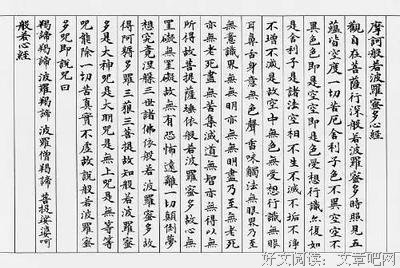 摩訶般若波羅蜜多心經
觀自在菩薩行深般若波羅蜜多時照見五
蘊皆空度一切苦厄舍利子色不異空空不
異色色即是空空即是色受想行識亦復如
是舍利子是諸法空相不生不滅不垢不淨
不增不減是故空中無色無受想行識無眼
耳鼻舌身意無色聲香味觸法無眼界乃至
無意識界無無明亦無無明盡乃至無老死
亦無老死盡無苦集滅道無智亦無得以無
所得故菩提薩埵依般若波羅蜜多故心無
罣礙無罣礙故無有恐怖遠離一切顛倒夢
想究竟涅槃三世諸佛依般若波羅蜜多故
得阿耨多羅三藐三菩提故知般若波羅蜜
多是大神咒是大明咒是無上咒是無等等
咒能除一切苦真實不虛故說般若波羅蜜
多咒即說咒曰
羯諦羯諦 波羅羯諦 波羅僧羯諦 菩提娑婆呵
般若心經
好文阅读:文章吧网